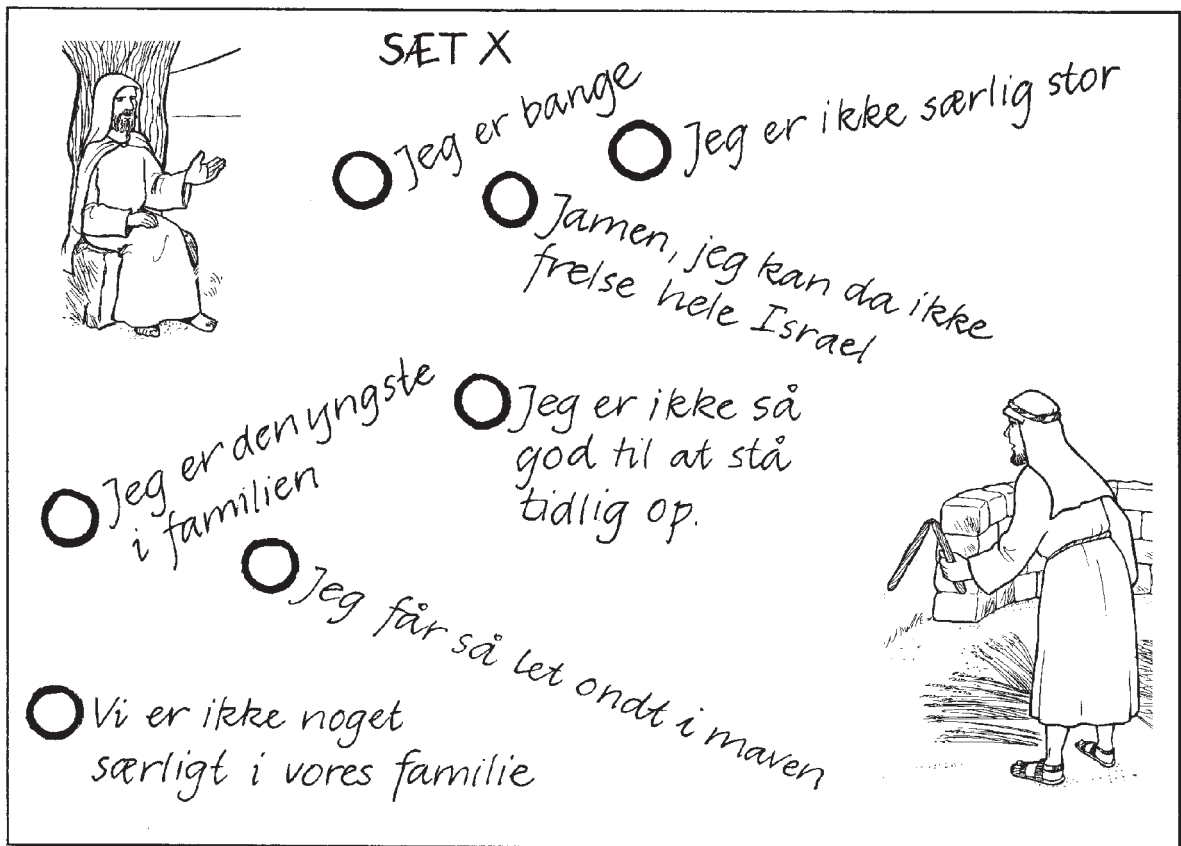 SÆT X
Jeg er bange
Jeg er ikke særlig stor
Jamen, jeg kan da ikke
frelse hele Israel
Jeg er den yngste
i familien
Jeg er ikke så
god til at stå
tidlig op.
Jeg får så let ondt i maven
Vi er ikke noget
særligt i vores familie